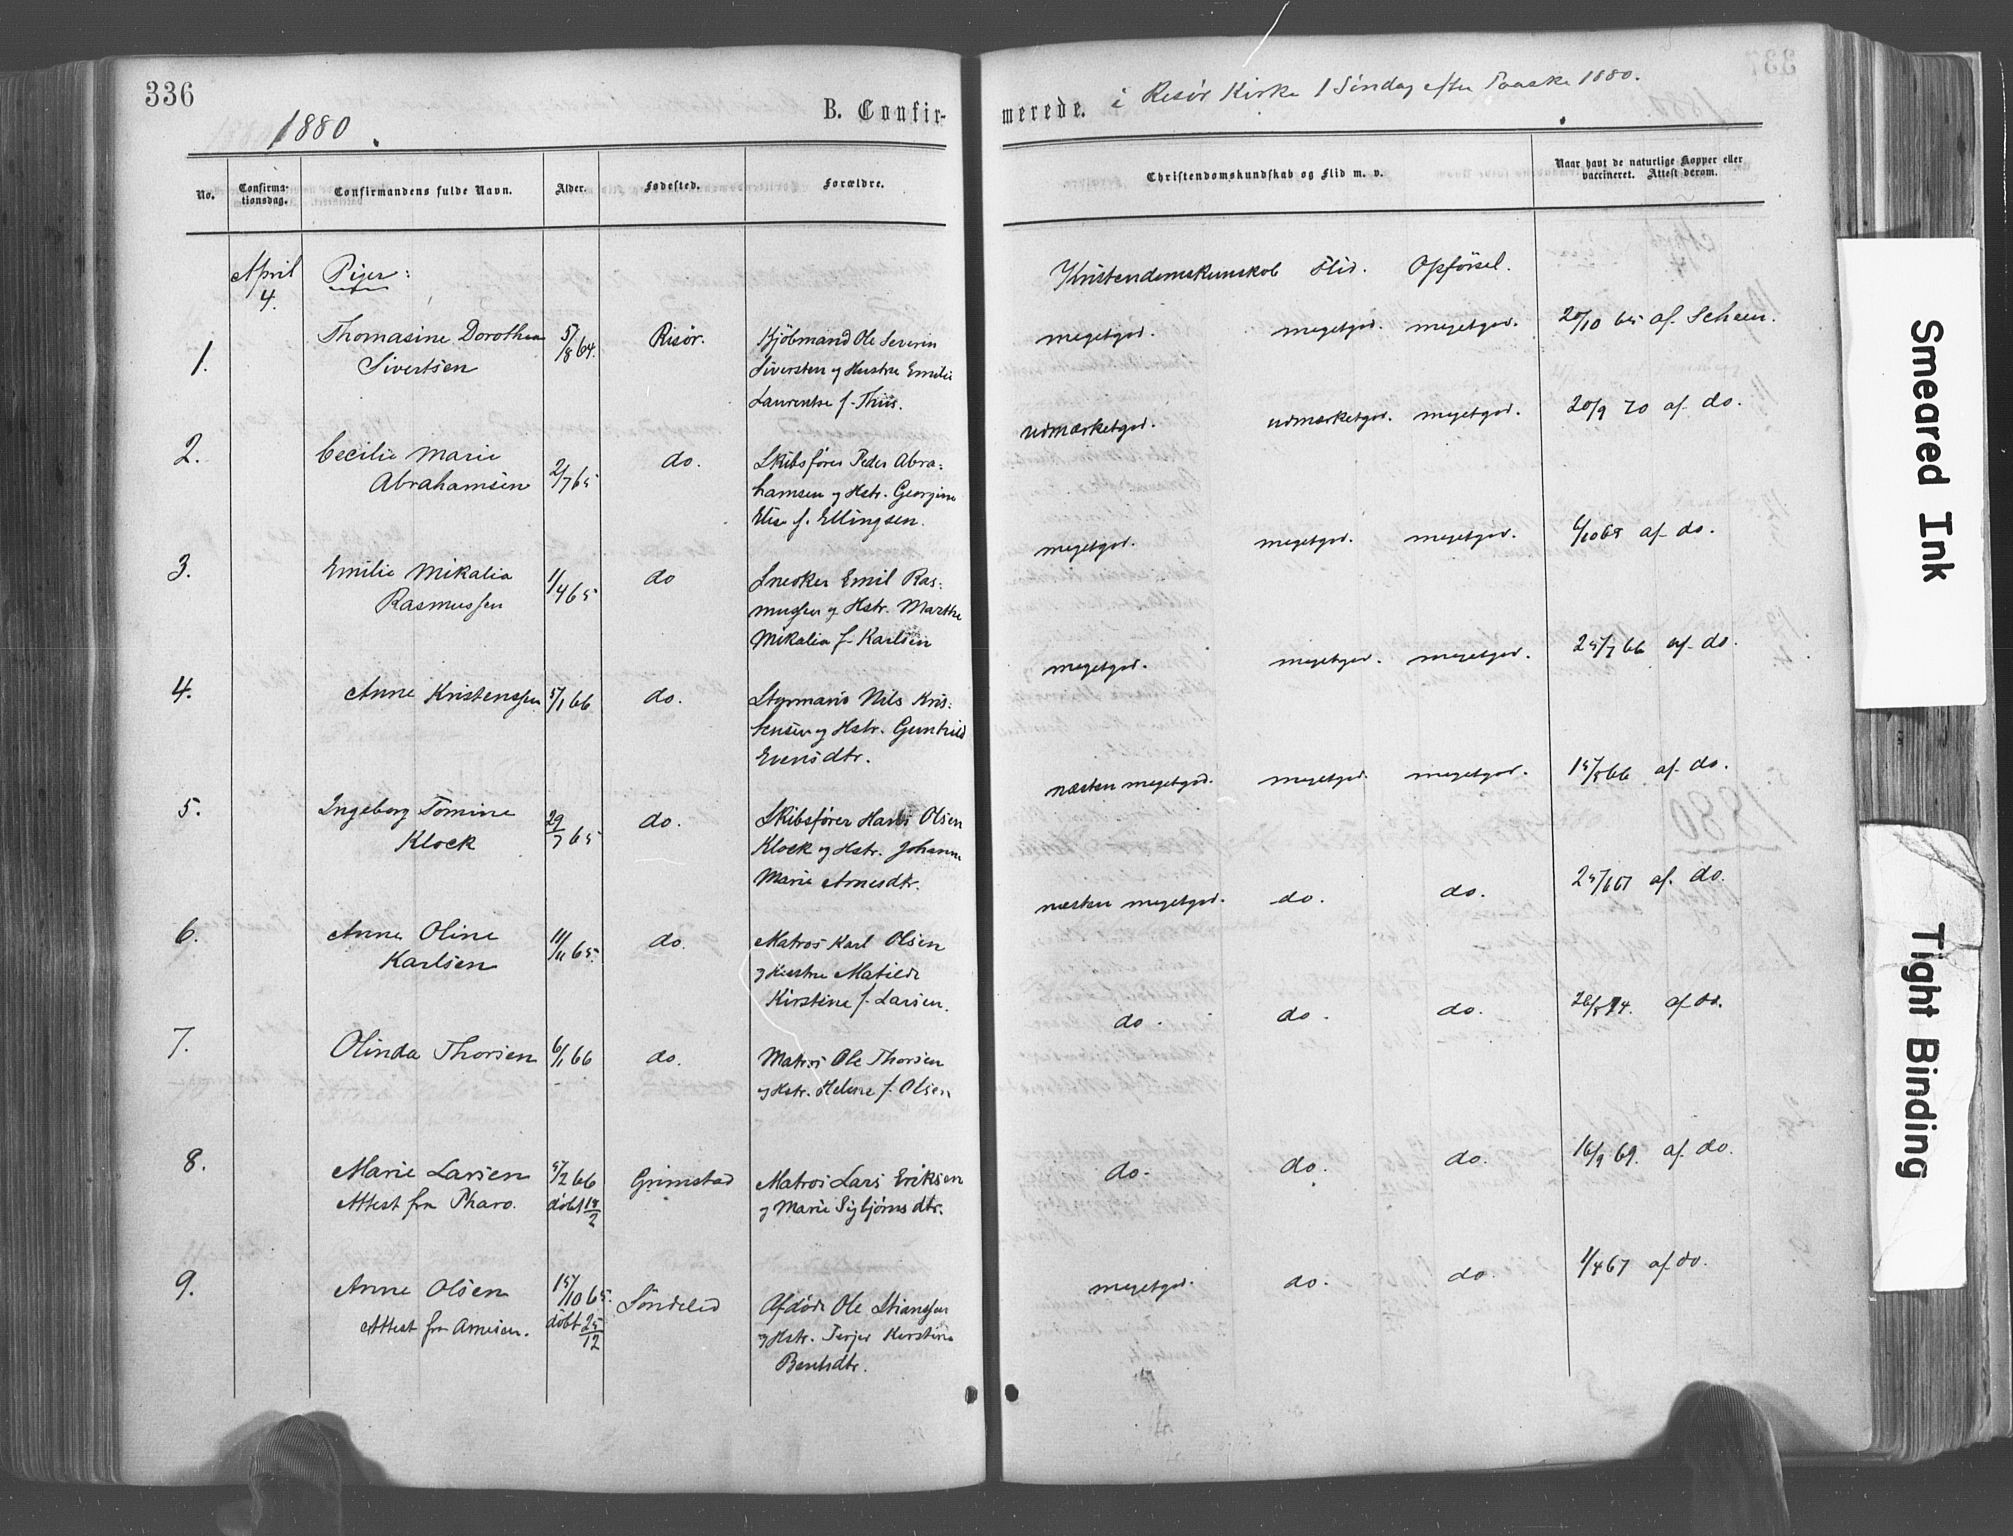 336
1880.
B. Confir-
merede. i Risør Kirke 1 Søndag efter Paaske 1880.
337
No.
Confirma-
tionsdag.
Confirmandens fulde Navn.
Alder.
Fødested.
Forældre.
Christendomskundskab og Flid m. v.
Naar havt de naturlige Kopper eller
vaccineret. Attest derom.
April
4.
Piger:
Kristendomskunskab Flid. Opførsel.
1.
Thomasine Dorothea
Sivertsen
5/8 64.
Risør.
Kjøbmand Ole Severin
Siversten og Hustru Emilie
Laurentse f. Thiis.
megetgod. megetgod. megetgod.
20/10 65 af Scheen.
2.
Cecilie Marie
Abrahamsen
2/7 65
do.
Skibsfører Peder Abra-
hamsen og Hstr. Georgine
Elise f. Ellingsen.
udmærketgod. udmærketgod. megetgod.
20/9 70 af do.
3.
Emilie Mikalia
Rasmussen
11/4 65
do
Snedker Emil Ras-
mussen og Hstr. Marthe
Mikalia f. Karlsen
megetgod. megetgod. megetgod.
6/10 65 af do.
4.
Anne Kristenssen
5/1 66
do.
Styrmand Nils Kris-
tensen og Hstr. Gunhild
Evensdtr.
megetgod. megetgod. megetgod.
25/7 66 af do.
5.
Ingeborg Tomine
Klock
29/7 65
do.
Skibsfører Hans Olsen
Klock og Hstr. Johanne
Marie Arnesdtr.
næsten megetgod. megetgod. megetgod.
15/8 66 af do.
6.
Anne Oline
Karlsen
11/11 65.
do.
Matros Karl Olsen
og Hustru Matilde
Kirstine f. Larsen.
næsten megetgod. do. do.
25/6 67 af do.
7.
Olinda Thorsen
6/1 66
do.
Matros Ole Thorsen
og Hstr. Helene f. Olsen
do. do. do.
af do.
8.
Marie Larsen
Attest fra Pharo.
5/2 66
døbt 18/2
Grimstad
Matros Lars Eriksen
og Marie Sigbjørnsdtr.
do. do. do.
16/9 69. af do.
9.
Anne Olsen
Attest fra Arnesen.
15/10 65.
døbt 25/12
Søndeled
Afdøde Ole Stianssen
og Hstr. Terjer Kirstine
Bentsdtr.
megetgod. do. do.
1/4 67 af do.
1880
Smeared Ink
Tight Binding